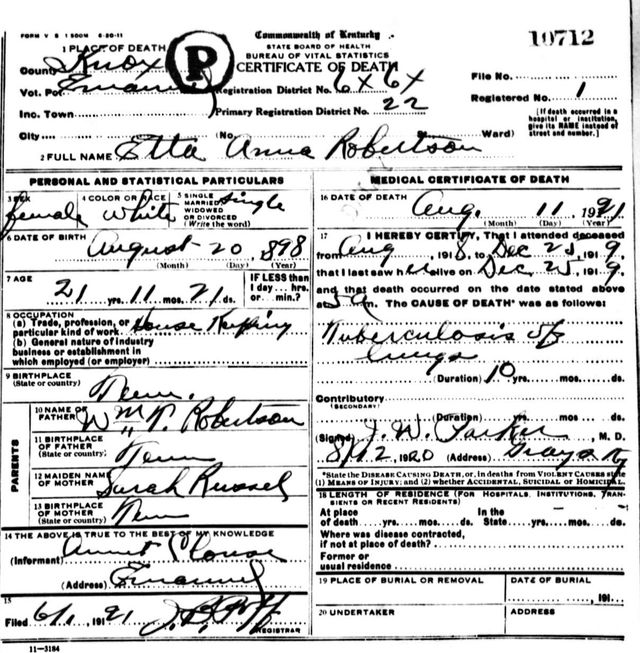 FORM V S 1 500M 6-20-11
Commonwealth of Kentucky
STATE BOARD OF HEALTH
BUREAU OF VITAL STATISTICS
CERTIFICATE OF DEATH
10712
1 PLACE OF DEATH
County Knox
P
Vot. Pct. Emanuel
Registration District No. 6x6x
File No.
Inc. Town
Primary Registration District No. 22
Registered No. 1
City (No. Ward)
[If death occurred in a hospital or institution, give its NAME instead of street and number.]
2 FULL NAME Etta Anna Robertson
PERSONAL AND STATISTICAL PARTICULARS
3 SEX
female
4 COLOR OR RACE
White
5 SINGLE
MARRIED
WIDOWED
OR DIVORCED
(Write the word)
single
6 DATE OF BIRTH
August 20 1898
(Month) (Day) (Year)
7 AGE
21 yrs. 11 mos. 21 ds.
IF LESS than
1 day... hrs.
or min.?
8 OCCUPATION
(a) Trade, profession, or
particular kind of work House Keeping
(b) General nature of industry
business or establishment in
which employed (or employer)
9 BIRTHPLACE
(State or country)
Tenn.
PARENTS
10 NAME OF
FATHER
Wm Robertson
11 BIRTHPLACE
OF FATHER
(State or country)
Tenn
12 MAIDEN NAME
OF MOTHER
Sarah Russel
13 BIRTHPLACE
OF MOTHER
(State or country)
Tenn
14 THE ABOVE IS TRUE TO THE BEST OF MY KNOWLEDGE
(Informant)
(Address) Emanuel
15
Filed 6/1, 1921
REGISTRAR
11-3184
MEDICAL CERTIFICATE OF DEATH
16 DATE OF DEATH
Aug. 11 1921
(Month) (Day) (Year)
17 I HEREBY CERTIFY, That I attended deceased
from Aug 1918, to Dec 25, 1919,
that I last saw her alive on Dec 25, 1919,
and that death occurred on the date stated above
at 5 a m. The CAUSE OF DEATH* was as follows:
Tuberculosis of
lungs
(Duration) 10 yrs. mos. ds.
Contributory
(SECONDARY)
(Duration) yrs. mos. ds.
Signed J. W. Parker, M. D.
8/12, 1920 (Address) Grays Ky
*State the DISEASE CAUSING DEATH, or, in deaths from VIOLENT CAUSES state
(1) MEANS OF INJURY; and (2) whether ACCIDENTAL, SUICIDAL or HOMICIDAL.
18 LENGTH OF RESIDENCE (FOR HOSPITALS, INSTITUTIONS, TRANSIENTS OR RECENT RESIDENTS)
At place
of death yrs. mos. ds.
In the
State yrs. mos. ds.
Where was disease contracted,
if not at place of death?
Former or
usual residence
19 PLACE OF BURIAL OR REMOVAL
DATE OF BURIAL
, 191
20 UNDERTAKER
ADDRESS